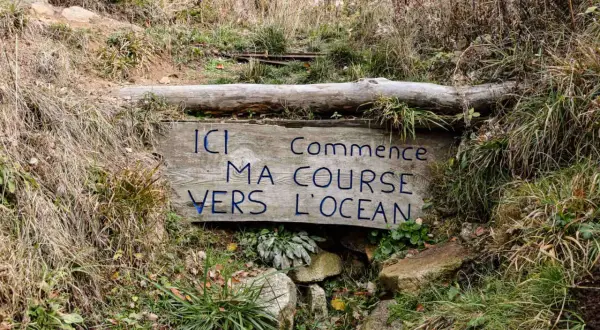 ICI Commence
MA COURSE
VERS L'OCEAN